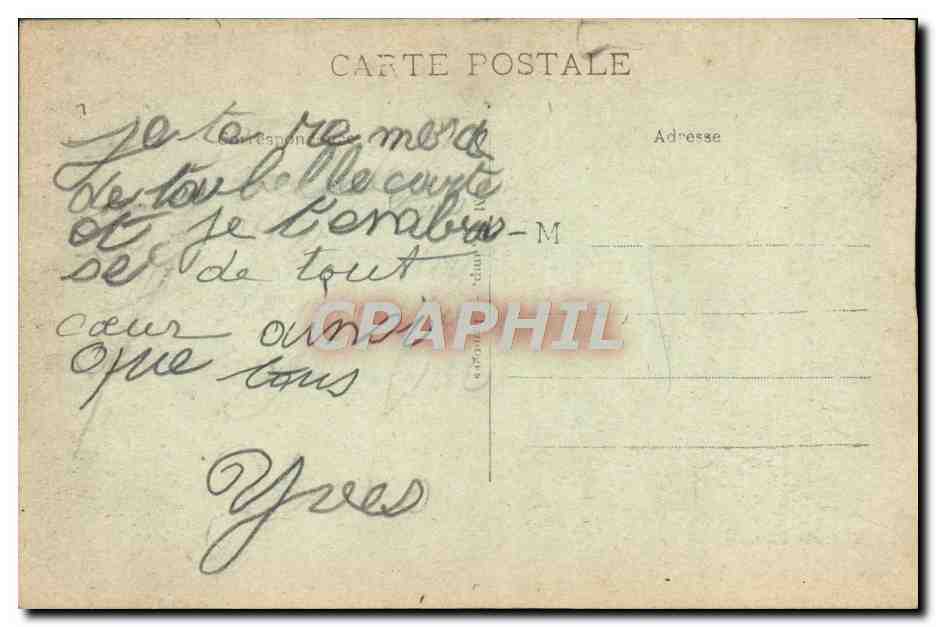 CARTE POSTALE
Correspondance
Adresse
je te re merci
de ta belle carte
et je t'embras
se de tout
cœur ainsi
que tous
Yves
M
CPAPHIL